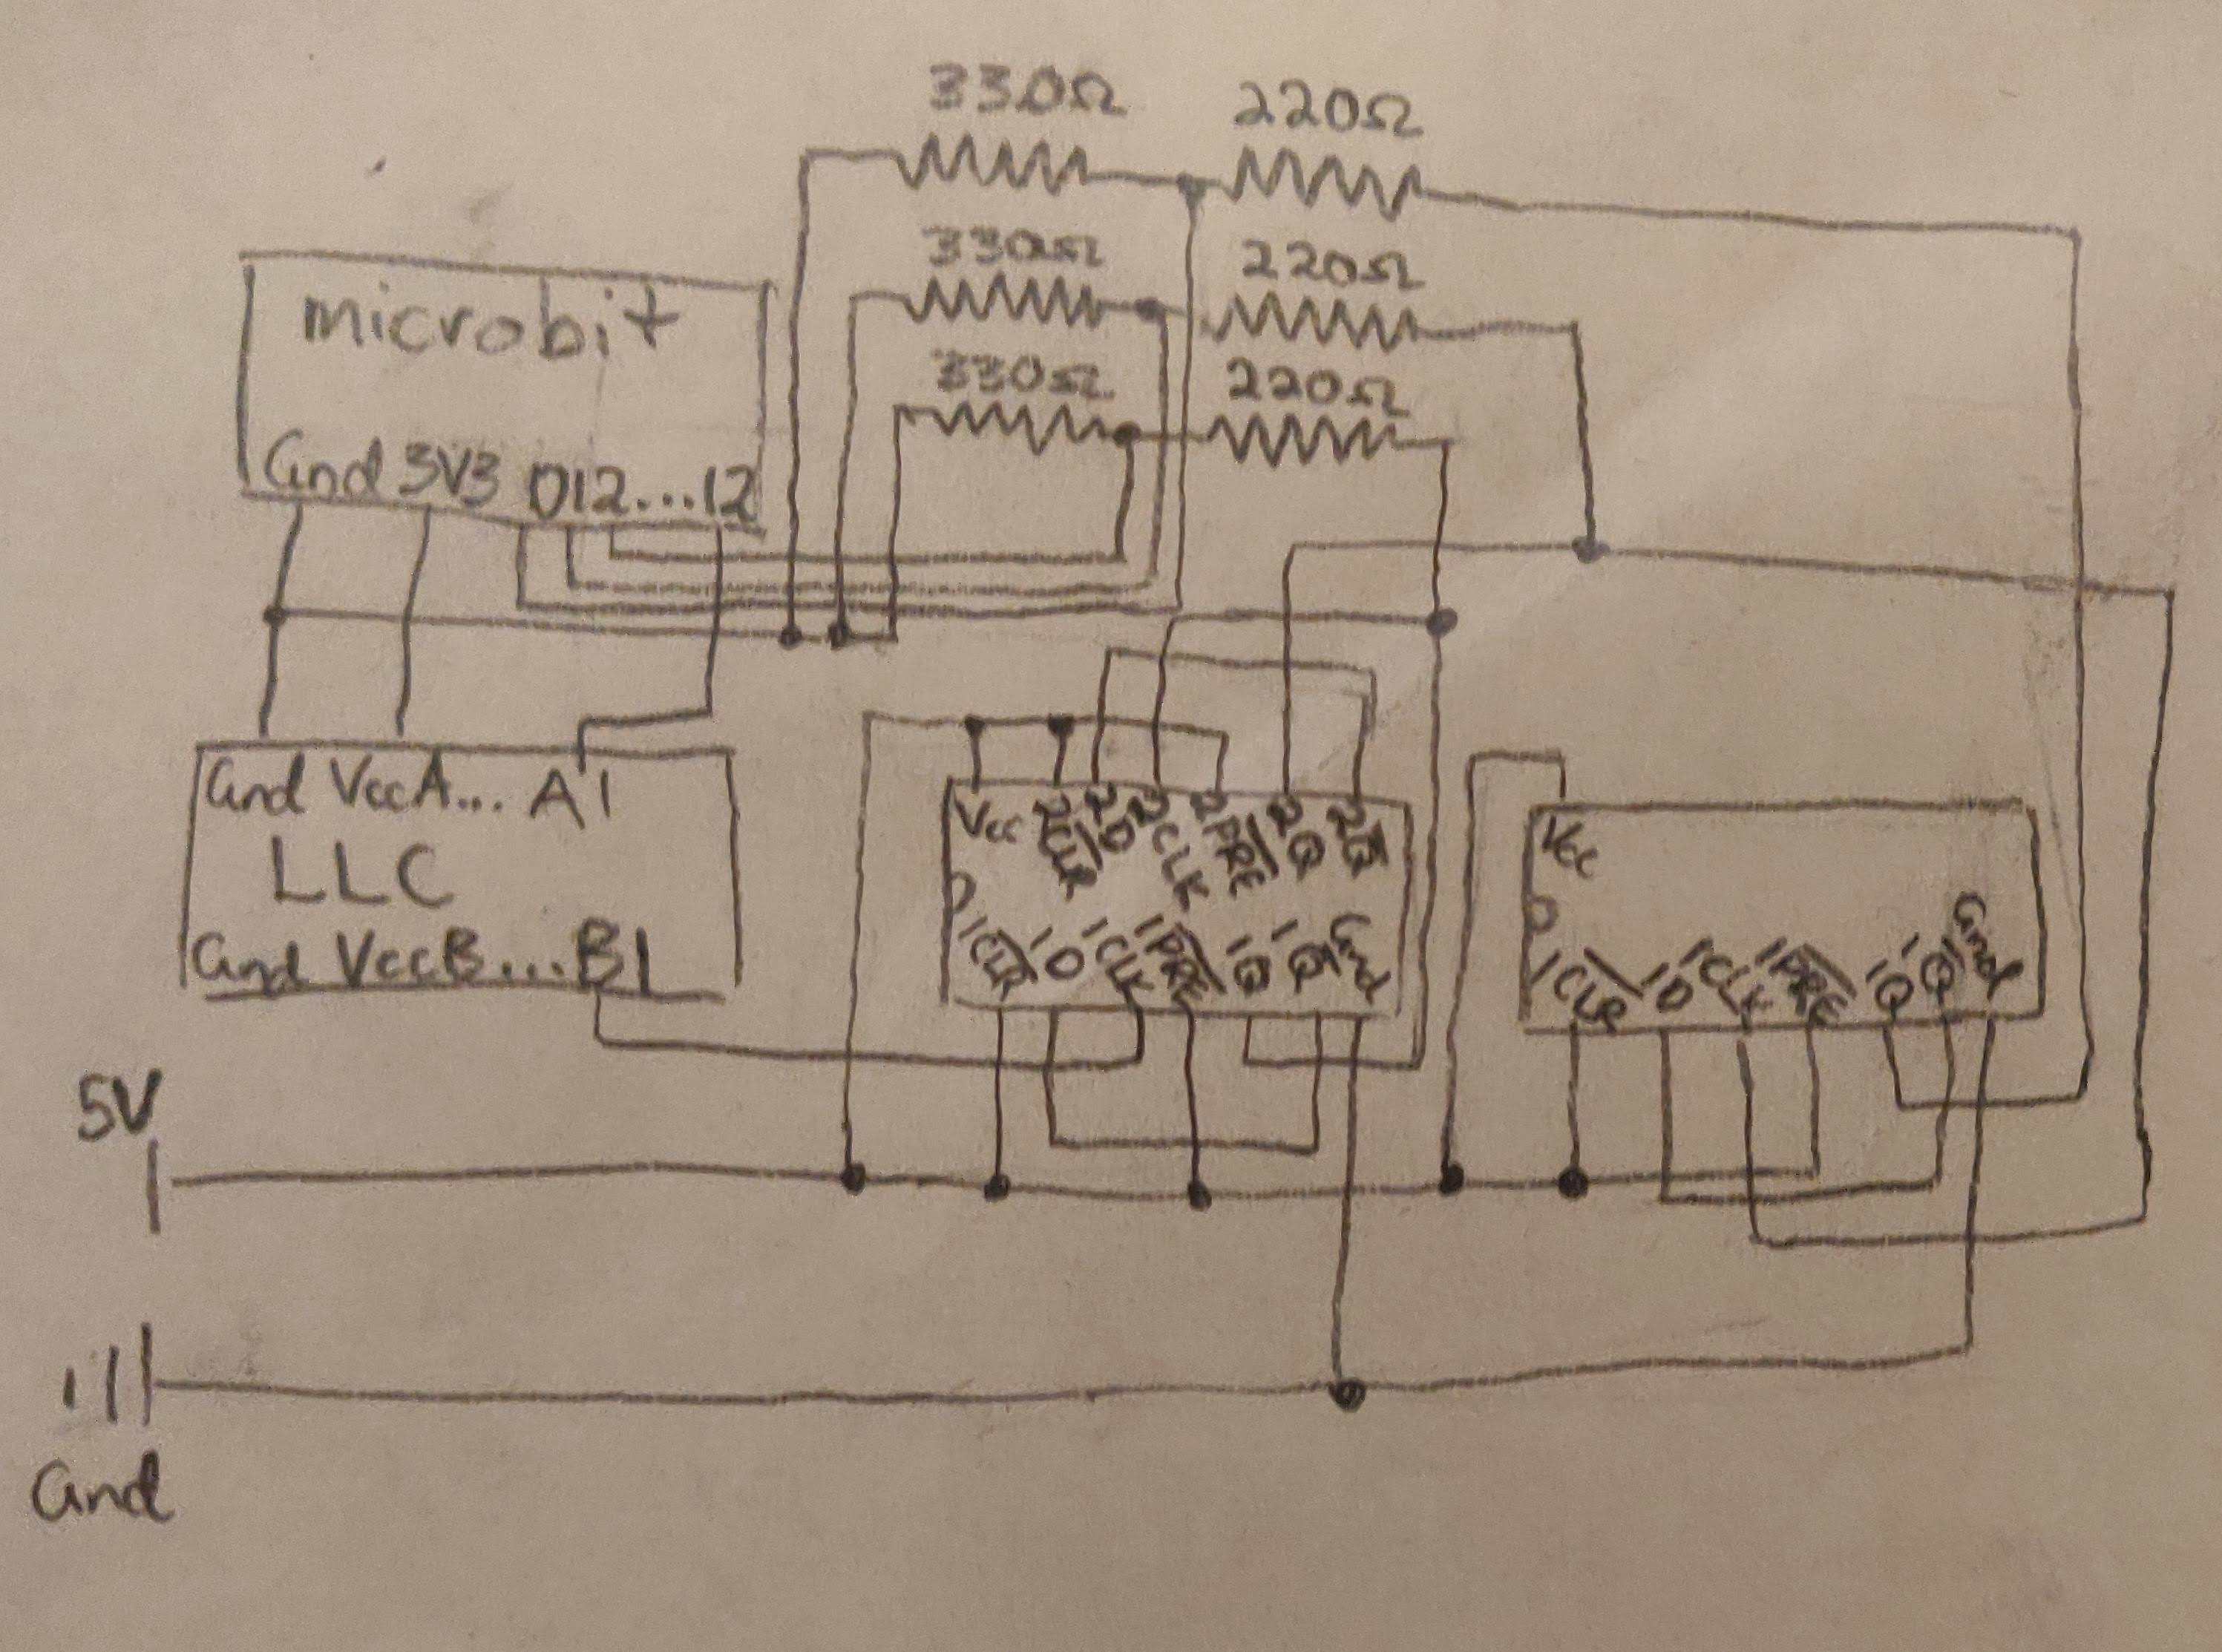 330Ω 220Ω
330Ω 220Ω
330Ω 220Ω
microbit
Gnd 3V3 012...12
Gnd VccA... A1
LLC
Gnd VccB...B1
Vcc 2C̅L̅R̅ 2D 2CLK 2P̅R̅E̅ 2Q 2Q̅
1C̅L̅R̅ 1D 1CLK 1P̅R̅E̅ 1Q 1Q̅ Gnd
Vcc
1C̅L̅R̅ 1D 1CLK 1P̅R̅E̅ 1Q 1Q̅ Gnd
5V
Gnd